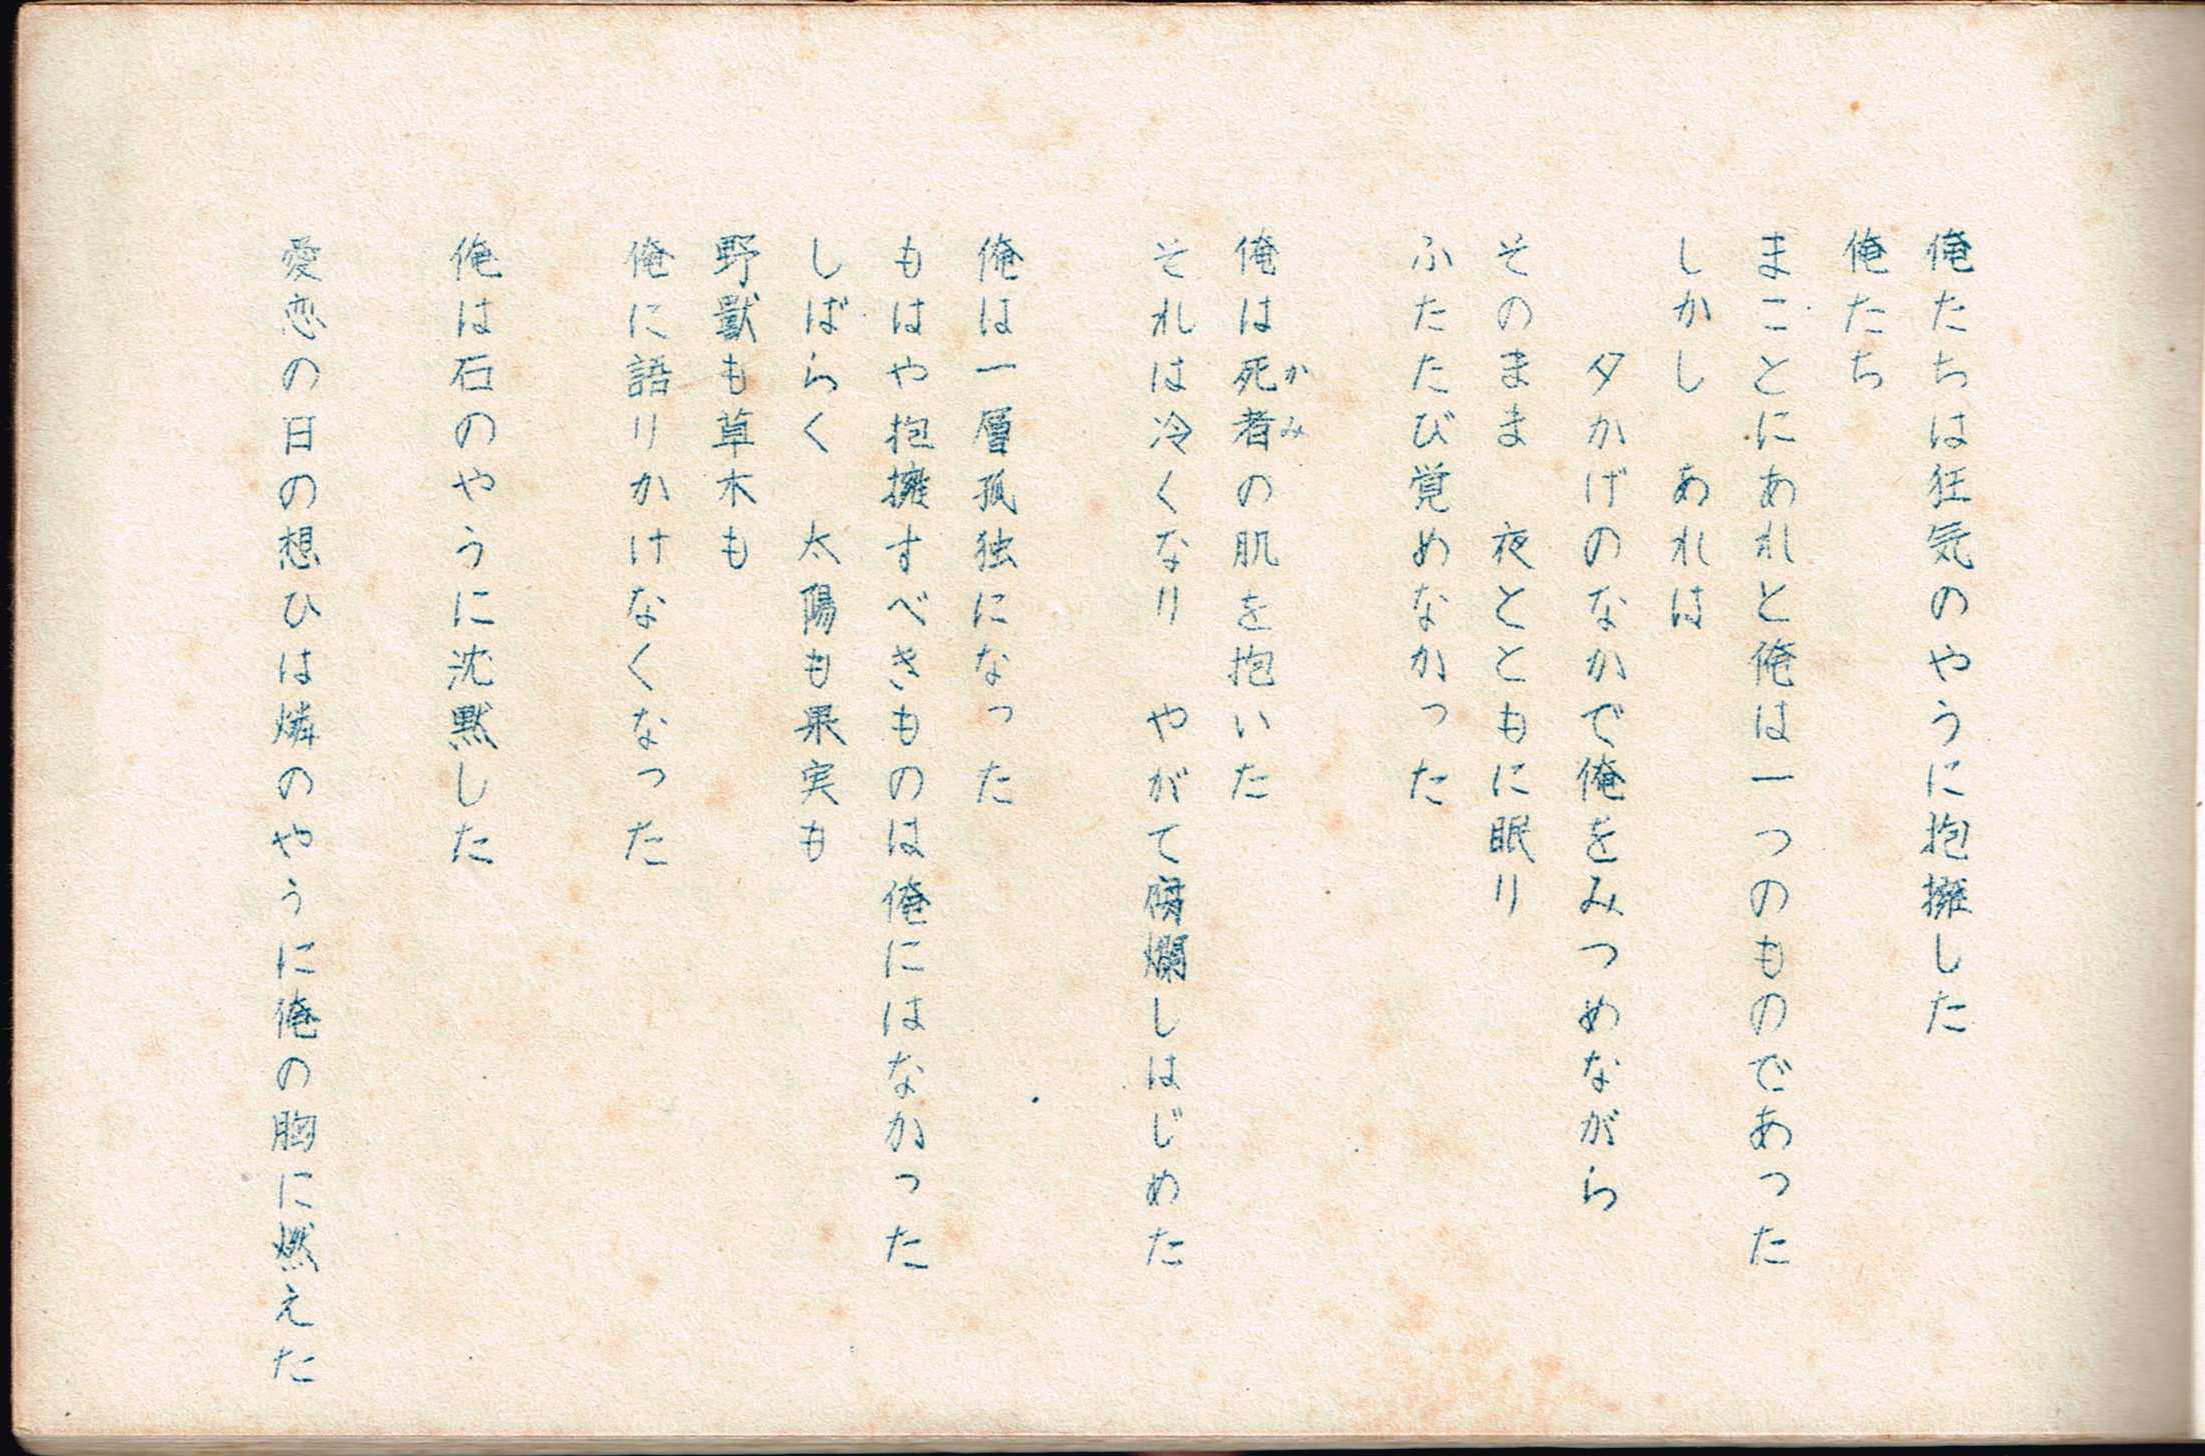 俺たちは狂気のやうに抱擁した
俺たち
まことにあれと俺は一つのものであった
しかし　あれは
夕かげのなかで俺をみつめながら
そのまま　夜とともに眠り
ふたたび覚めなかった
俺は死者の肌を抱いた
かみ
それは冷くなり　やがて腐爛しはじめた
俺は一層孤独になった
もはや抱擁すべきものは俺にはなかった
しばらく　太陽も果実も
野獣も草木も
俺に語りかけなくなった
俺は石のやうに沈黙した
愛恋の日の想ひは燐のやうに俺の胸に燃えた